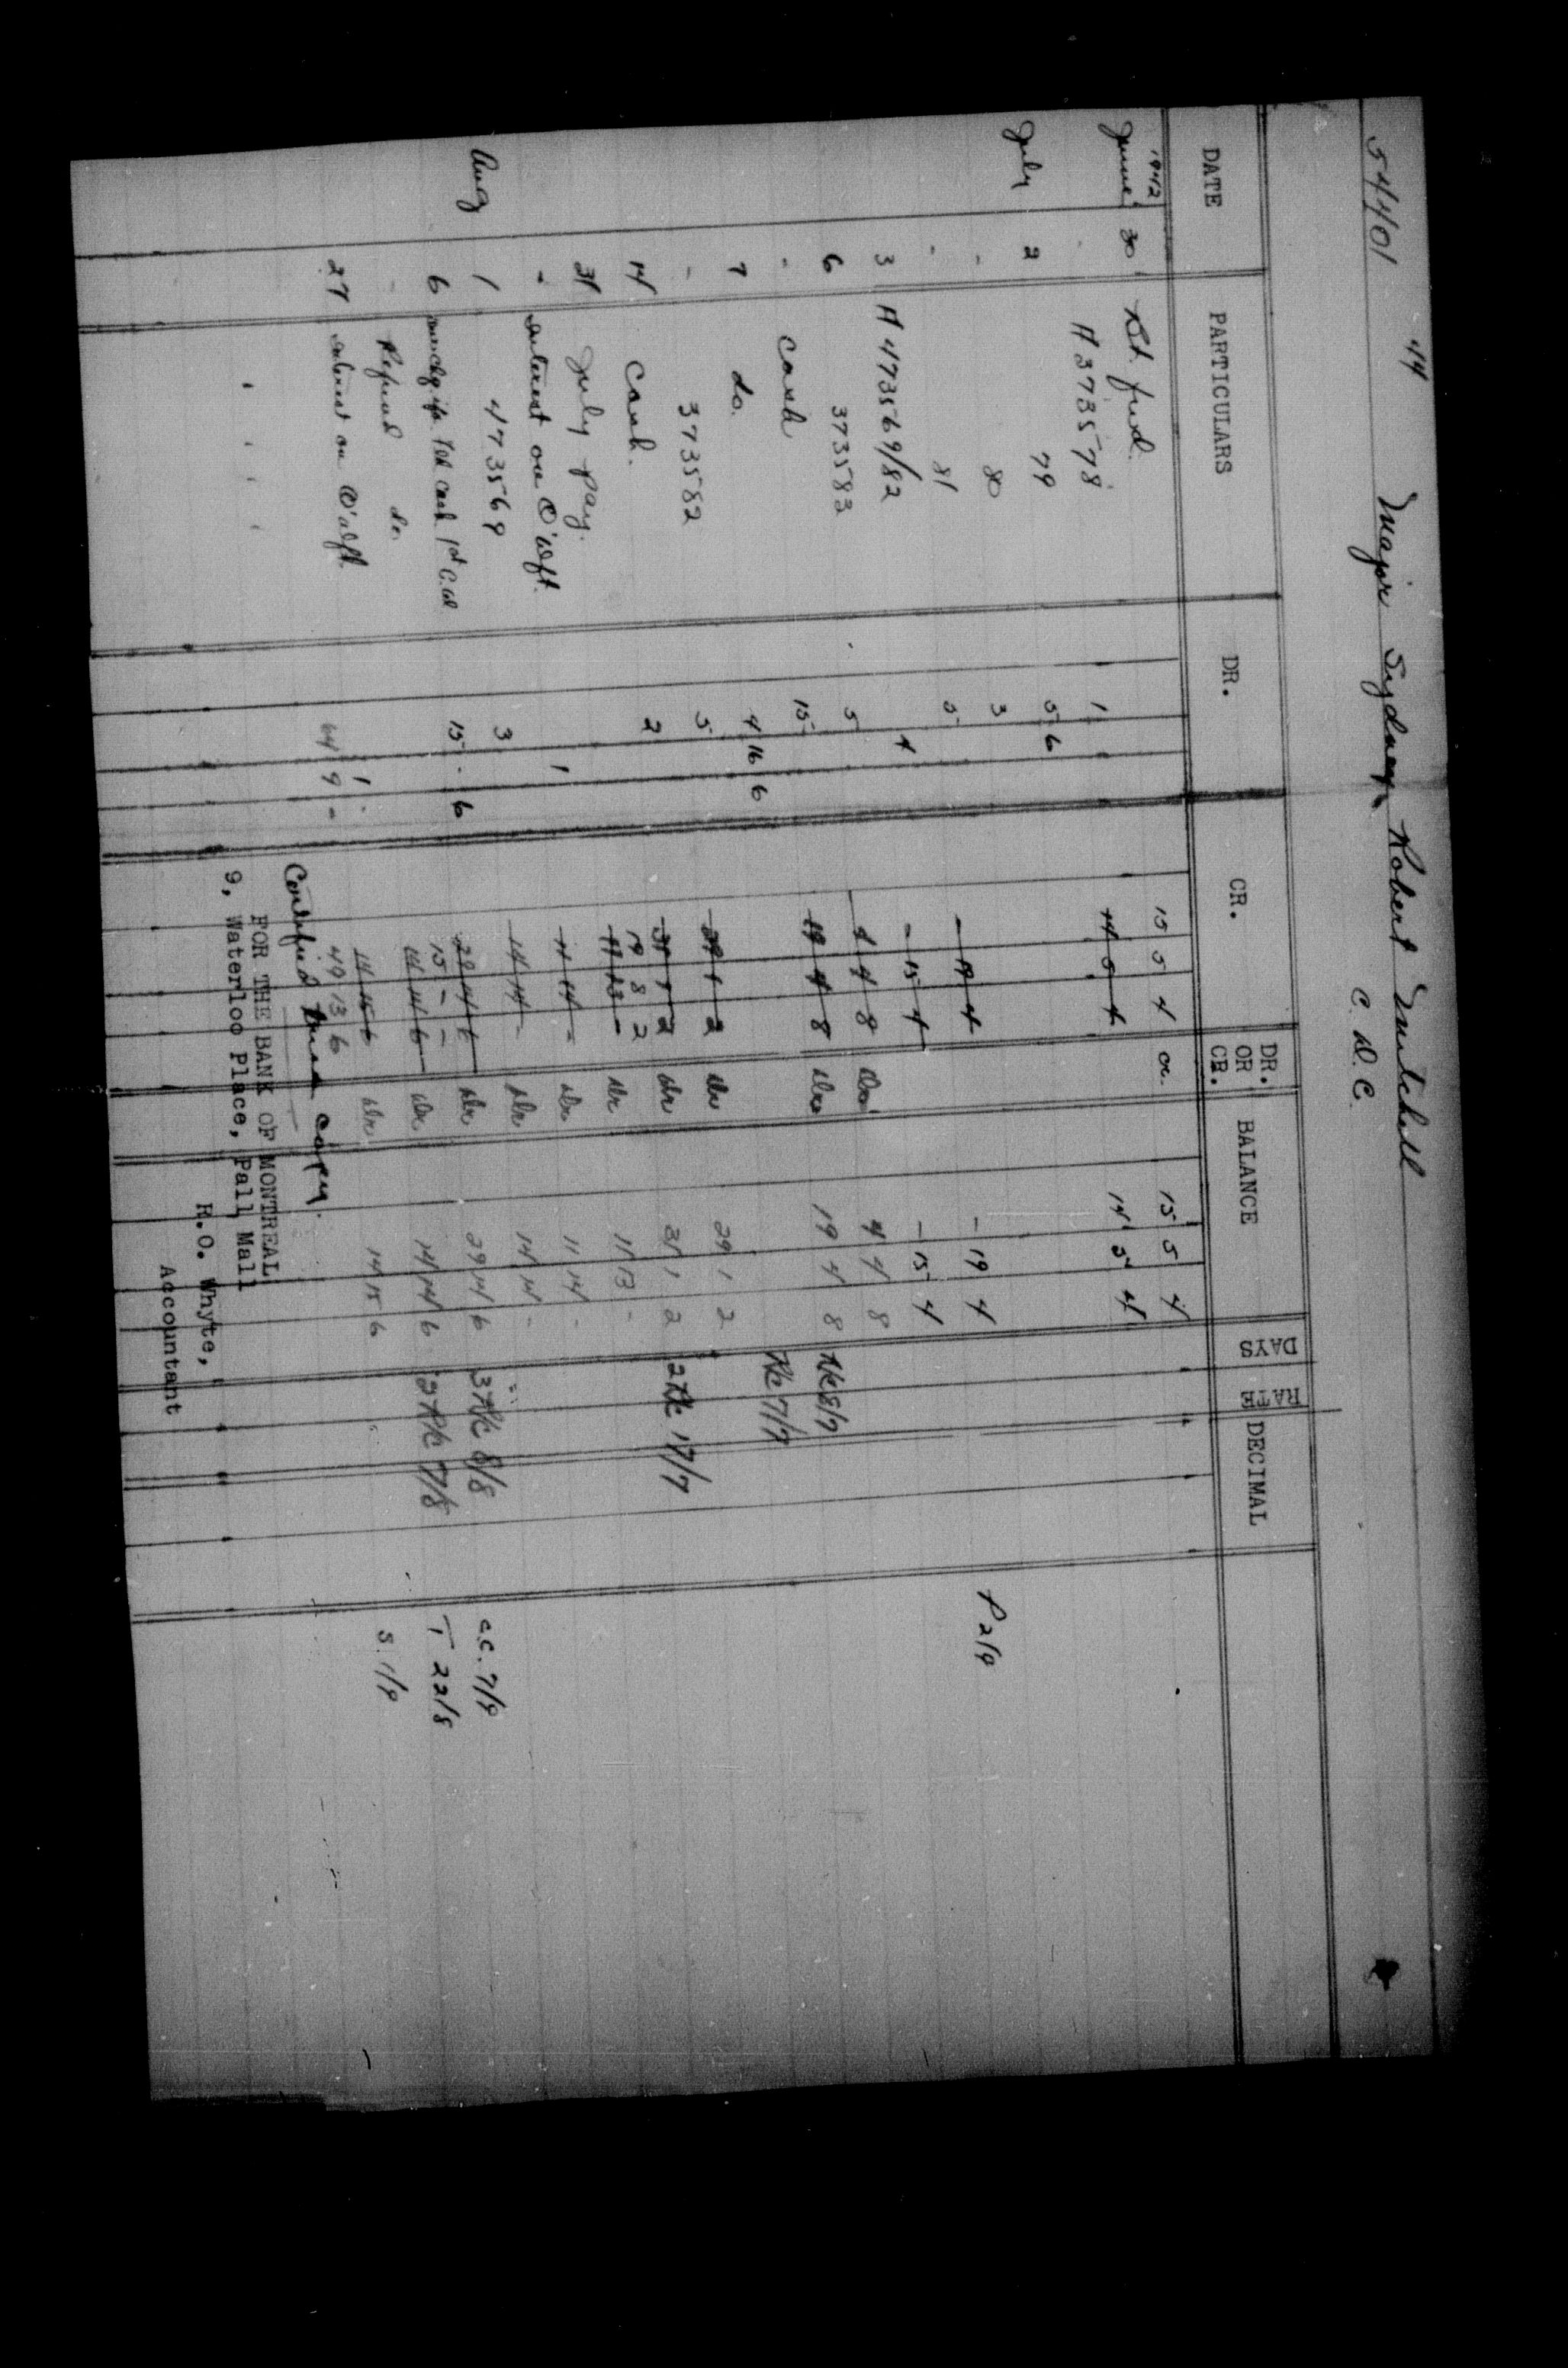 54401 44 Major Sydney Robert Mitchell
C. D. C.
DATE PARTICULARS DR. CR. DR. OR CR. BALANCE DAYS RATE DECIMAL
1942
June 30 Bt. fwd. 15 5 4 cr. 15 5 4
A 373578 1 14 5 4 14 5 4
July 2 79 5 6
- 80 3 - 19 4 - 19 4 P 2/9
- 81 5 - 15 4 - 15 4
3 A 473569/82 4
6 373583 5 4 4 8 Dr 4 4 8
- Cash 15 19 4 8 Dr 19 4 8 R/c 8/7
7 do. 4 16 6 R/c 7/7
- 373582 5 29 1 2 Dr 29 1 2
14 Cash. 2 31 1 2 Dr 31 1 2 2 R/c 17/7
31 July pay. 19 8 2
11 13 - Dr 11 13 -
- Interest on O'dft. 1 11 14 - Dr 11 14 -
Aug 1 473569 3 14 14 - Dr 14 14 -
6 15 - 6 29 14 6 Dr 29 14 6 3 R/c 8/8 C.C. 7/9
- Refund do. 15 - -
14 14 6 Dr 14 14 6 2 R/c 7/8 T 22/8
27 Interest on O'dft. 1 14 15 6 Dr 14 15 6 S. 1/9
64 9 - 49 13 6
Certified true copy.
FOR THE BANK OF MONTREAL
9, Waterloo Place, Pall Mall
R.O. Whyte,
Accountant